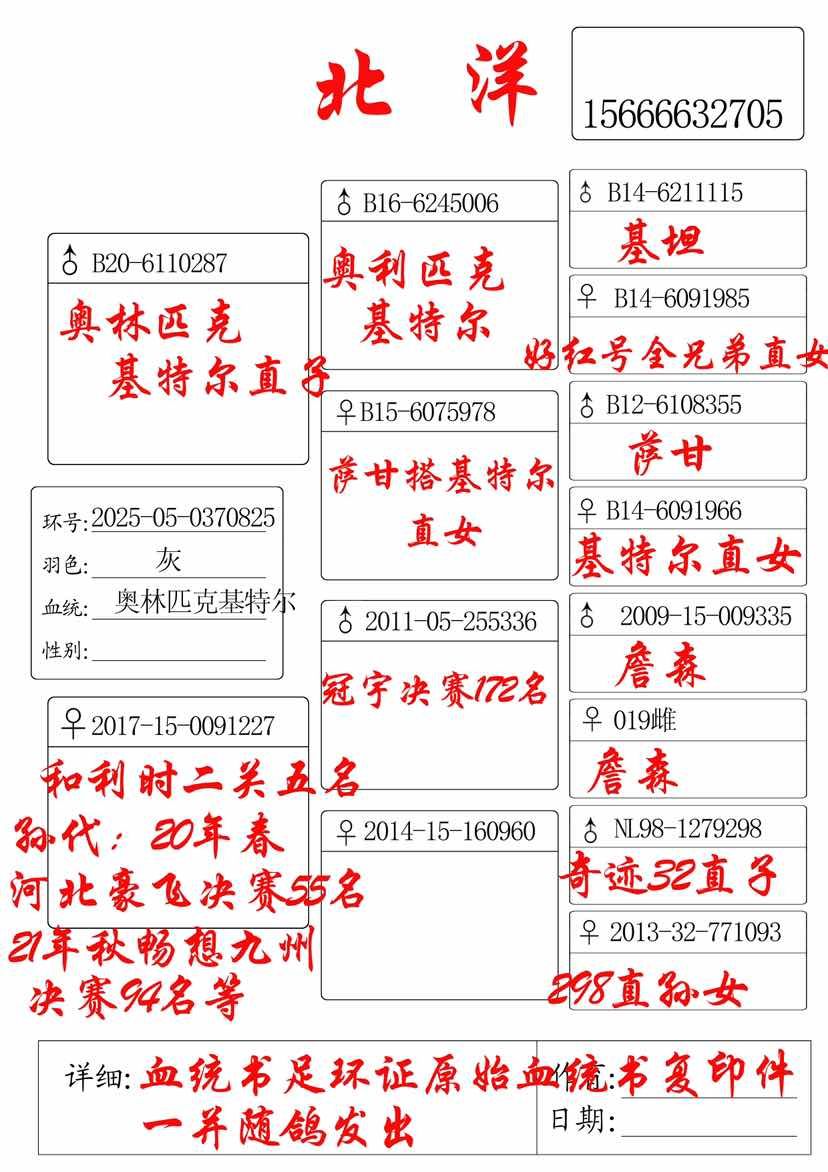 北 洋
15666632705
♂ B20-6110287
奥林匹克
基特尔直子
环号: 2025-05-0370825
羽色: 灰
血统: 奥林匹克基特尔
性别:
♀ 2017-15-0091227
和利时二关五名
孙代：20年春
河北豪飞决赛55名
21年秋畅想九州
决赛94名等
♂ B16-6245006
奥利匹克
基特尔
♀ B15-6075978
萨甘搭基特尔
直女
♂ 2011-05-255336
冠宇决赛172名
♀ 2014-15-160960
♂ B14-6211115
基坦
♀ B14-6091985
好红号全兄弟直女
♂ B12-6108355
萨甘
♀ B14-6091966
基特尔直女
♂ 2009-15-009335
詹森
♀ 019雌
詹森
♂ NL98-1279298
奇迹32直子
♀ 2013-32-771093
298直孙女
详细: 血统书足环证原始血统书复印件
一并随鸽发出
日期: